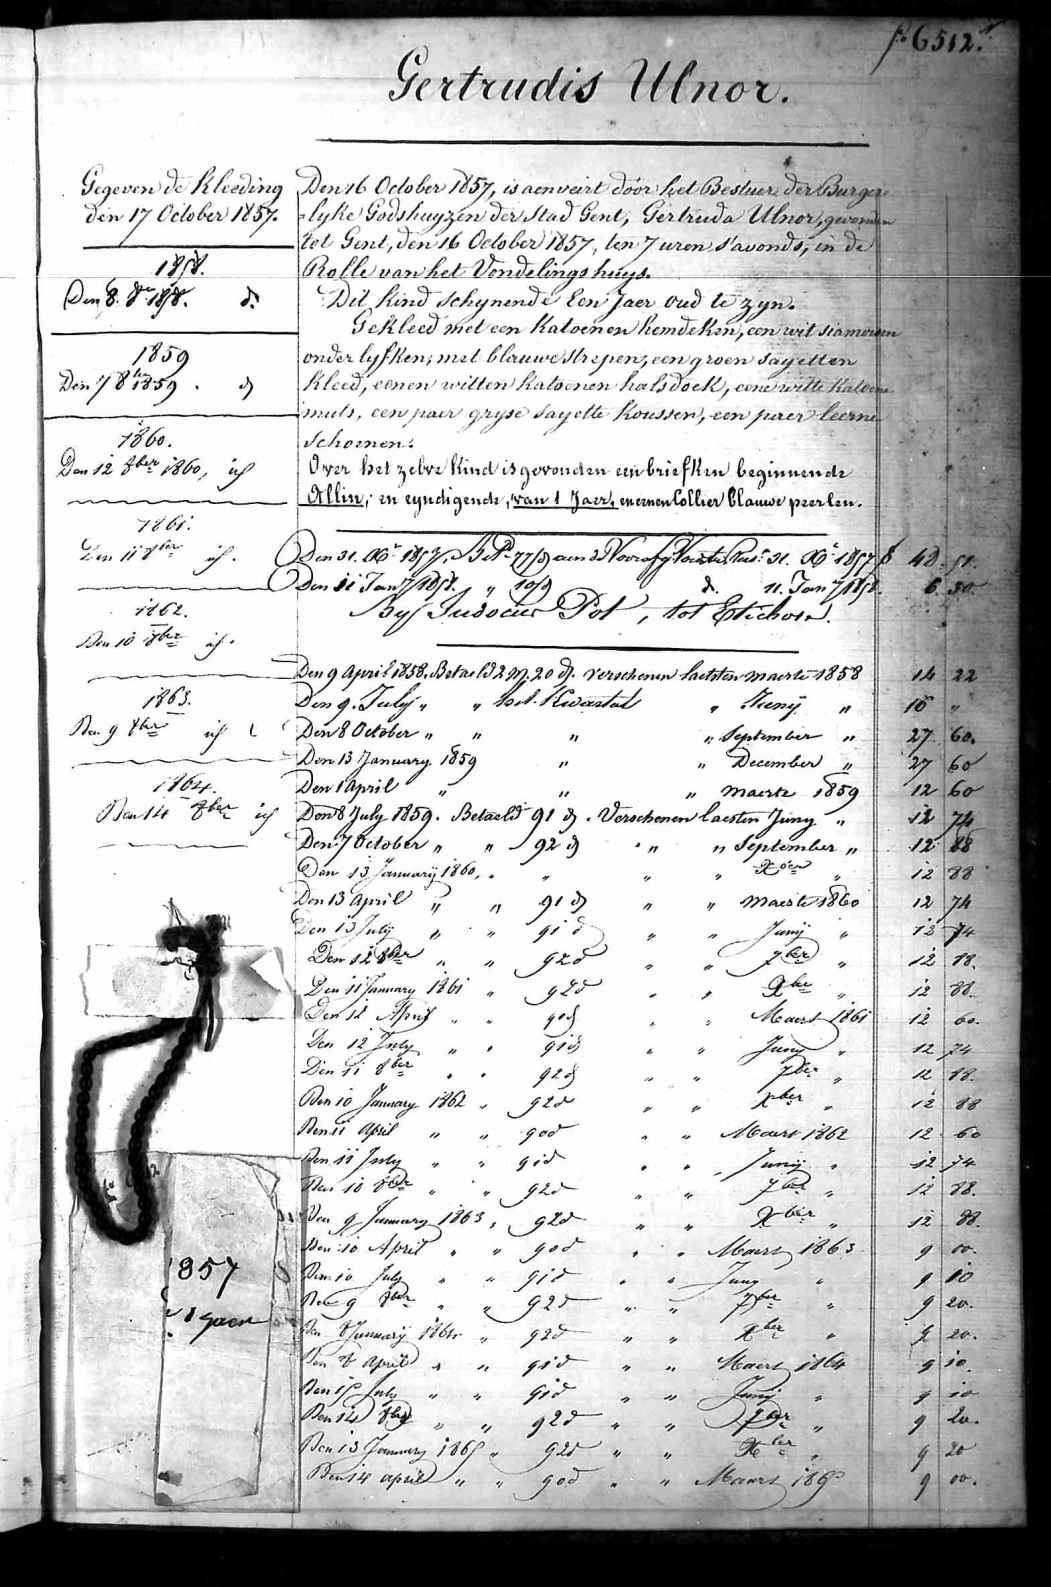 6512.
Gertrudis Ulnor.
Gegeven de Kleeding
den 17 October 1857.
1858.
Den 8. 8re 1858. d.
1859
Den 7 8ber 1859. d
1860.
Den 12 8ber 1860, id
1861.
Den 11 8ber id.
1862.
Den 10 8ber id.
1863.
Den 9 8ber id
1864.
Den 14 8ber id
1857
1 Jaer
Den 16 October 1857, is aenveirt door het Bestuer der Burger-
-lyke Godshuyzen der Stad Gent, Gertruda Ulnor, gevonden
tot Gent, den 16 October 1857, ten 7 uren s'avonds, in de
Rolle van het Vondelingshuys.
Dit kind schynende Een Jaer oud te zyn.
Gekleed met een Katoenen hemdeken, een wit siamoisen
onderlyfken, met blauwe strepen, een groen sayetten
Kleed, eenen witten Katoenen halsdoek, eene witte Katoene
muts, een paer gryse sayette Koussen, een paer leerne
schoenen.
Over het zelve Kind is gevonden een briefken beginnende
Allin, en eyndigende, van 1 Jaer, en eenen Collier blauwe peerlen.
Den 31. Xre 1857, 31. Xre 1857 48. 51.
Den 11 Jany 1858. " 10 d. 11. Jany 1858. 6. 50
By Judocus Pot, tot Etichove.
Den 9 April 1858. Betaeld 2 m. 20 d. verschenen laetsten maerte 1858 14 22
Den 9. July " " het Kwartal " Juny " 16 "
Den 8 October " " " " September " 27 60.
Den 13 January 1859 " " December " 27 60
Den 1 April " " " maerte 1859 12 60
Den 8 July 1859. Betaeld 91 d. Verschenen laesten Juny " 12 74
Den 7 October " " 92 d " " September " 12 88
Den 13 January 1860, " " " " Xber " 12 88
Den 13 April " " 91 d " " maerte 1860 12 74
Den 13 July " " 91 d " " Junij " 12 74
Den 12 8ber " " 92 d " " 7ber " 12 88.
Den 11 January 1861 " 92 d " " Xber " 12 88.
Den 12 April " " 90 d " " Maert 1861 12 60.
Den 12 July " " 91 d " " Juny " 12 74
Den 11 8ber " " 92 d " " 7ber " 12 88.
Den 10 January 1862 " 92 d " " Xber " 12 88
Den 11 April " " 90 d " " Maert 1862 12 60
Den 11 July " " 91 d " " Junij " 12 74
Den 10 8ber " " 92 d " " 7ber " 12 88.
Den 9 January 1863, " 92 d " " Xber " 12 88.
Den 10 April " " 90 d " " Maert 1863 9 00.
Den 10 July " " 91 d " " Juny " 9 10
Den 9 8ber " " 92 d " " 7ber " 9 20.
Den 8 January 1864 " 92 d " " Xber " 9 20.
Den 8 April " " 91 d " " Maert 1864 9 10.
Den 15 July " " 91 d " " Junij " 9 10
Den 14 8ber " " 92 d " " 7ber " 9 20.
Den 13 January 1865 " 92 d " " Xber " 9 20
Den 14 april " " 90 d " " Maert 1865 9 00.